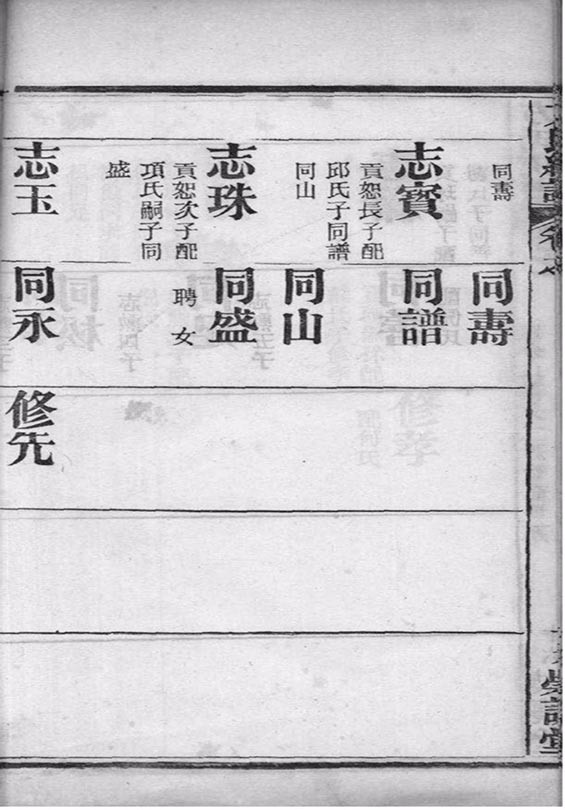 同壽
志寶
貢恕長子配
邱氏子同譜
同山
志珠
貢恕次子配
項氏嗣子同
盛
志玉
同壽
同譜
同山
同盛
聘 女
同永
修先